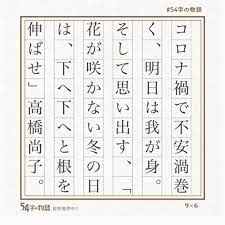 #54字の物語
コロナ禍で不安渦巻
く、明日は我が身。
そして思い出す、「
花が咲かない冬の日
は、下へ下へと根を
伸ばせ」高橋尚子。
54字の物語
9×6